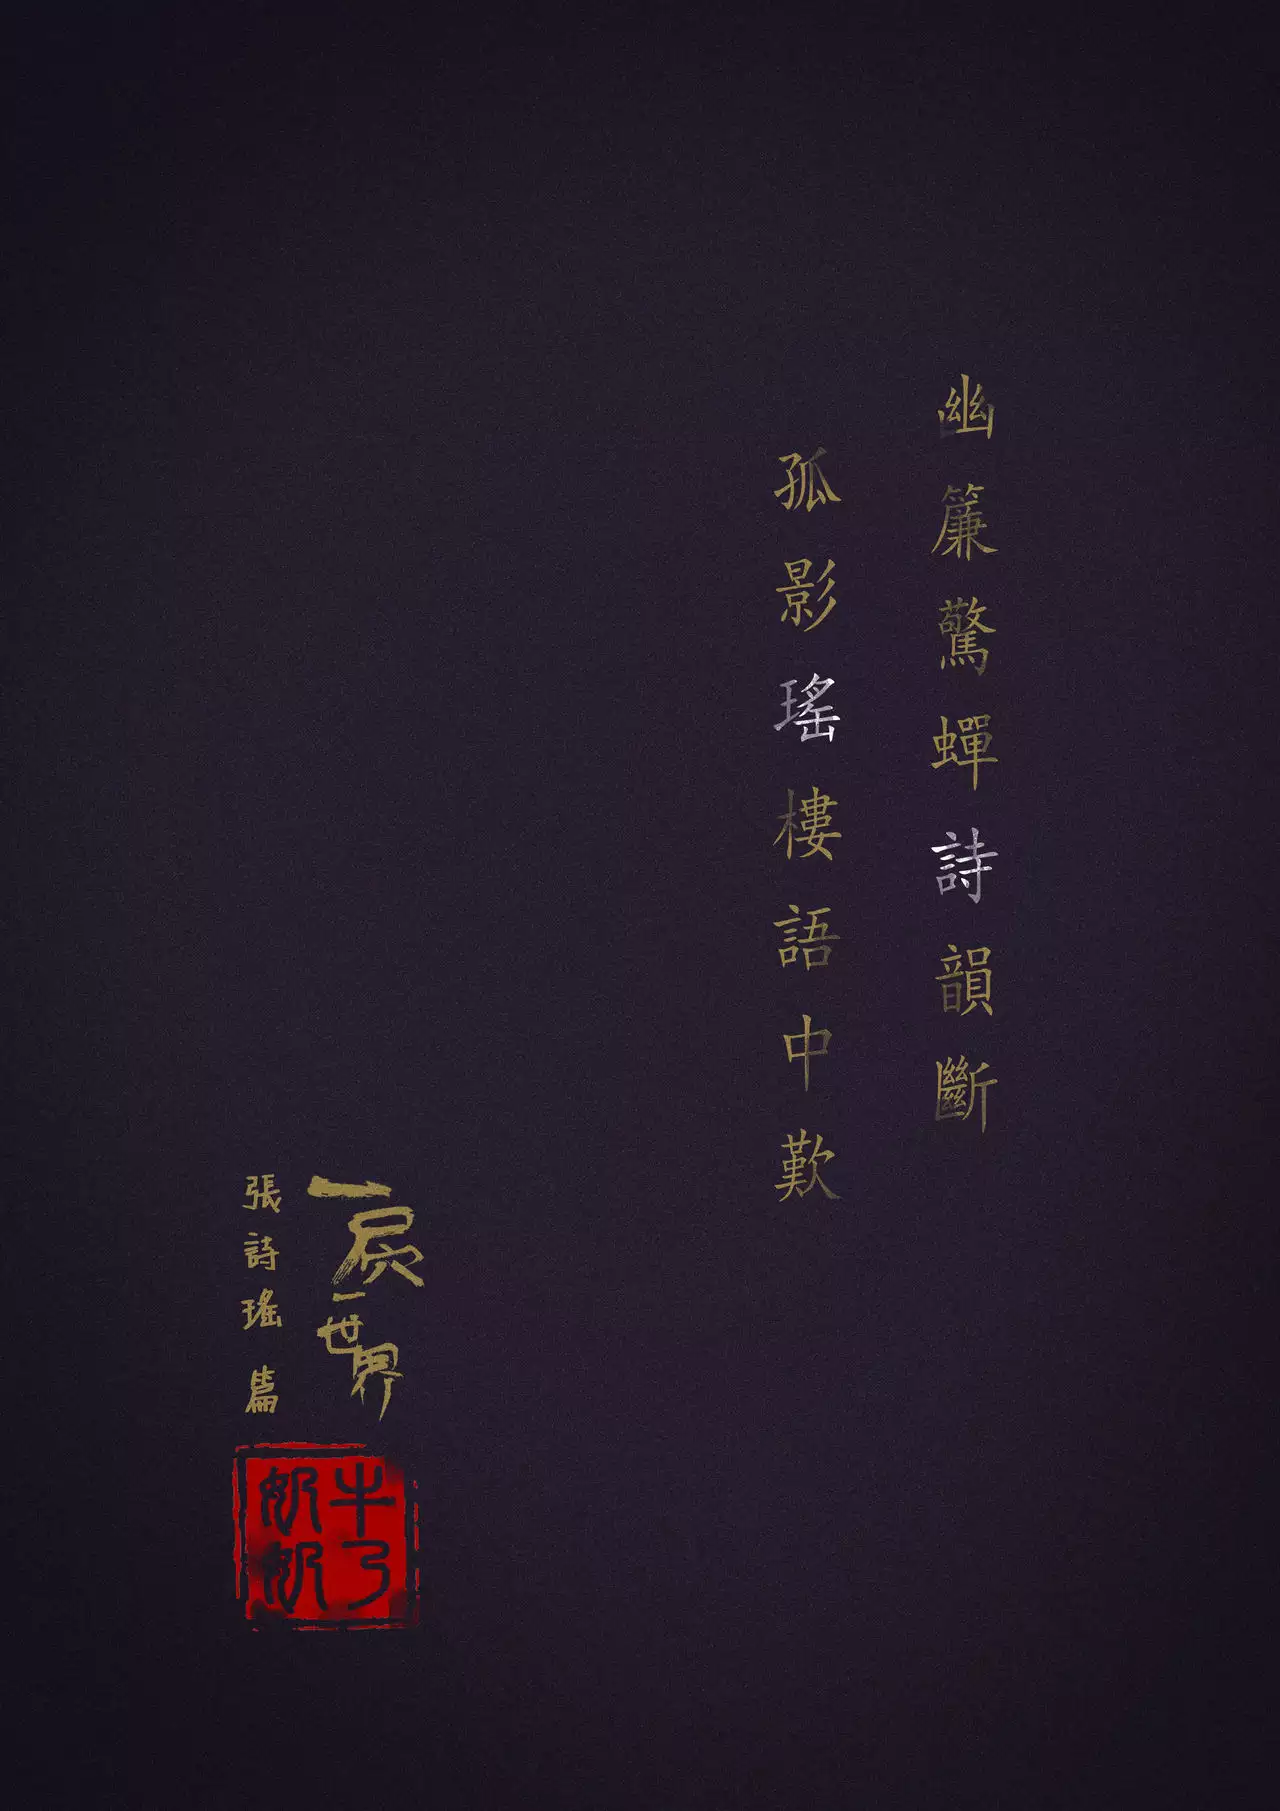 幽簾驚蟬詩韻斷
孤影瑤樓語中歎
一屄一世界
張詩瑤 篇
牛乃奶奶